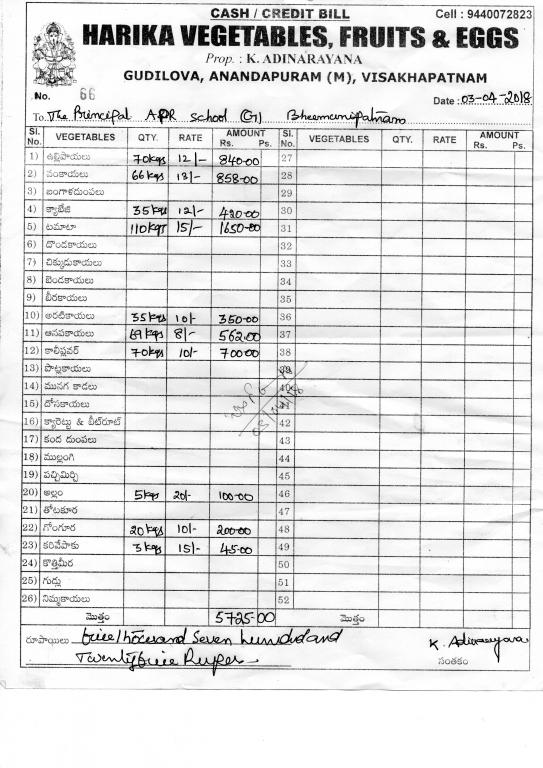 CASH / CREDIT BILL Cell : 9440072823
HARIKA VEGETABLES, FRUITS & EGGS
Prop. : K. ADINARAYANA
GUDILOVA, ANANDAPURAM (M), VISAKHAPATNAM
No. 66 Date : 03-04-2018
To. The Principal APR School (G) Bheemunipatnam
Sl. No. VEGETABLES QTY. RATE AMOUNT Rs. Ps. Sl. No. VEGETABLES QTY. RATE AMOUNT Rs. Ps.
1) ఉల్లిపాయలు 70kgs 12/- 840-00 27
2) వంకాయలు 66kgs 13/- 858-00 28
3) బంగాళదుంపలు 29
4) క్యాబేజి 35kgs 12/- 420-00 30
5) టమాటా 110kgs 15/- 1650-00 31
6) దొండకాయలు 32
7) చిక్కుడుకాయలు 33
8) బెండకాయలు 34
9) బీరకాయలు 35
10) అరటికాయలు 35kgs 10/- 350-00 36
11) ఆనపకాయలు 69kgs 8/- 562-00 37
12) కాలీఫ్లవర్ 70kgs 10/- 700-00 38
13) పొట్లకాయలు 39
14) మునగ కాడలు 40
15) దోసకాయలు 41
16) క్యారెట్టు & బీట్‌రూట్ 42
17) కంద దుంపలు 43
18) ముల్లంగి 44
19) పచ్చిమిర్చి 45
20) అల్లం 5kgs 20/- 100-00 46
21) తోటకూర 47
22) గోంగూర 20kgs 10/- 200-00 48
23) కరివేపాకు 3kgs 15/- 45-00 49
24) కొత్తిమీర 50
25) గుడ్లు 51
26) నిమ్మకాయలు 52
మొత్తం 5725-00 మొత్తం
రూపాయలు five thousand Seven hundred and
Twenty five Rupees K. Adinarayana
సంతకం